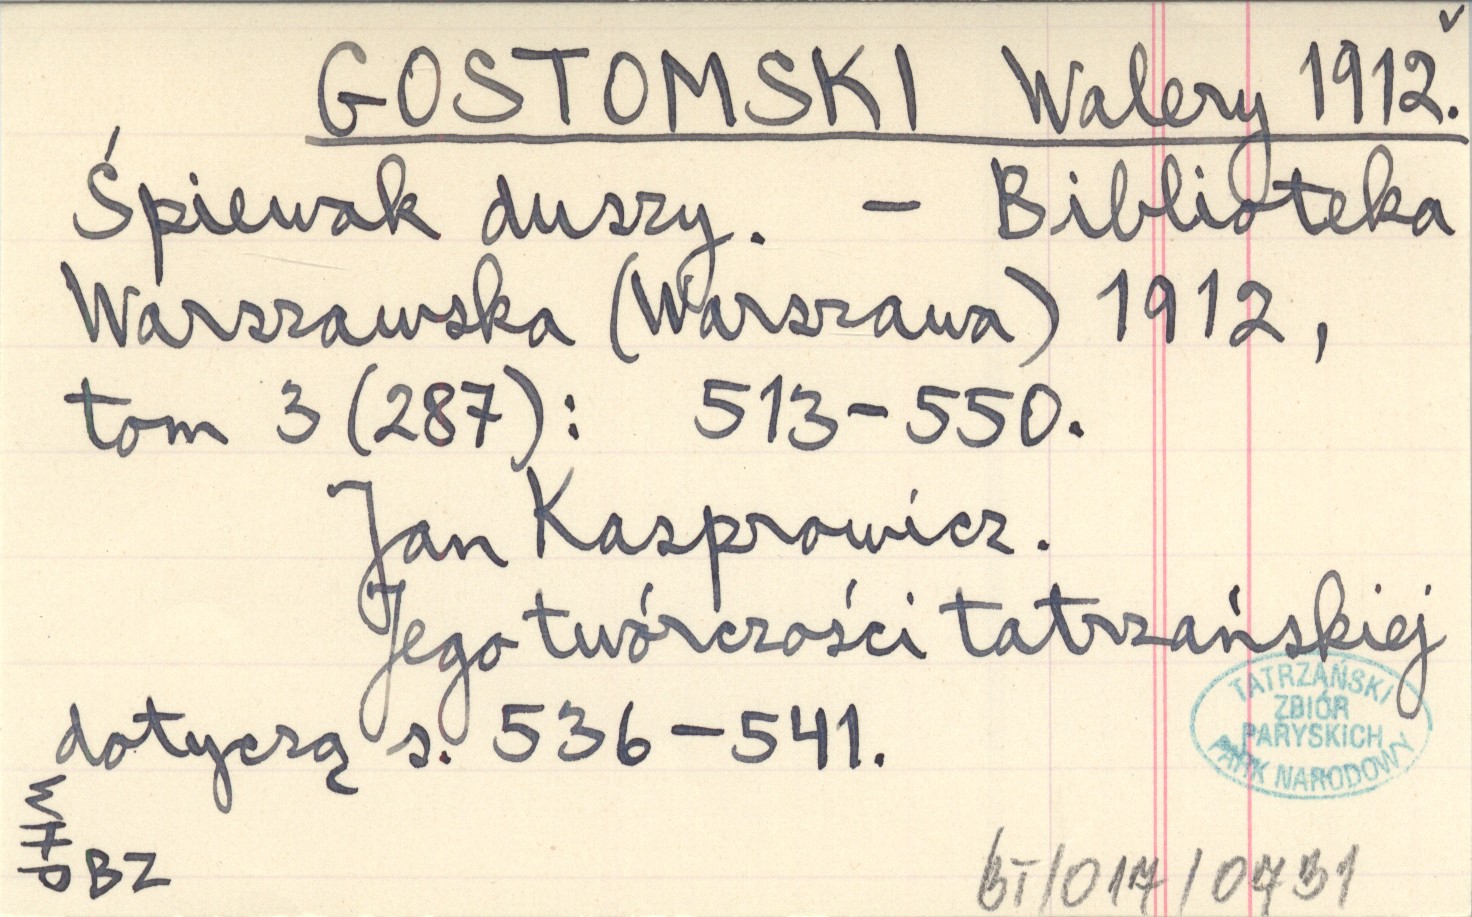 GOSTOMSKI Walery 1912.
Śpiewak duszy. – Biblioteka
Warszawska (Warszawa) 1912,
tom 3 (287): 513–550.
Jan Kasprowicz.
Jego twórczości tatrzańskiej
dotyczą s. 536–541.
TATRZAŃSKI
ZBIÓR
PARYSKICH
PARK NARODOWY
BZ
BT/017/0731